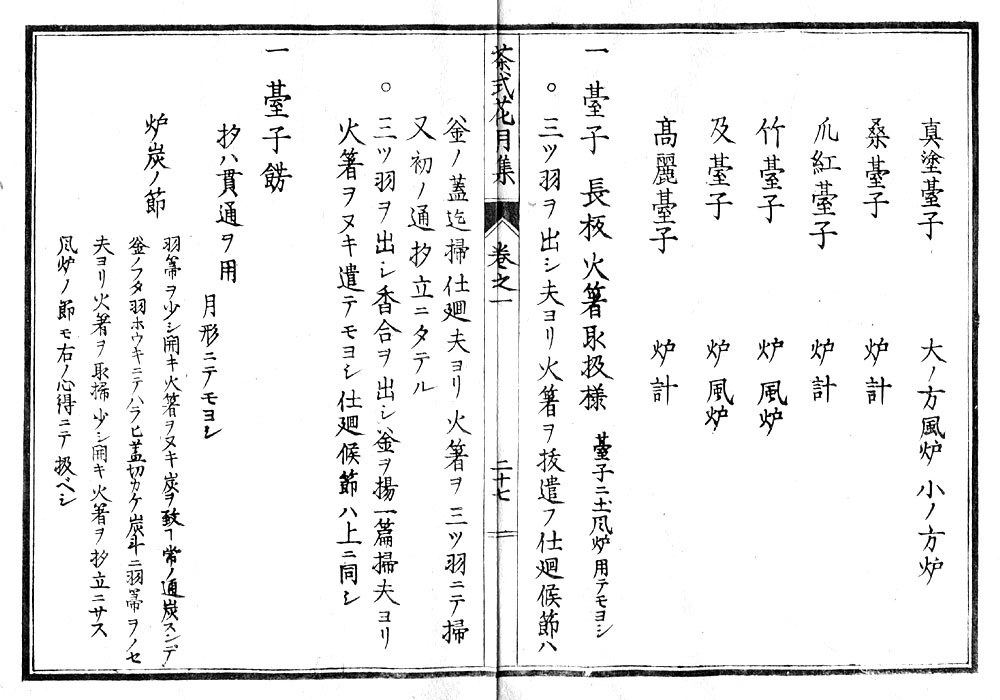 真塗臺子　大ノ方風炉 小ノ方炉
桑臺子　炉計
爪紅臺子　炉計
竹臺子　炉風炉
及臺子　炉風炉
髙麗臺子　炉計
一 臺子 長板 火箸取扱様　臺子ニ土風炉用テモヨシ
○ 三ツ羽ヲ出シ夫ヨリ火箸ヲ抜遣フ仕廻候節ハ
茶式花月集　巻之一　二十七
釜ノ蓋迄掃仕廻夫ヨリ火箸ヲ三ツ羽ニテ掃
又初ノ通抄立ニタテル
○ 三ツ羽ヲ出シ香合ヲ出シ釜ヲ揚一篇掃夫ヨリ
火箸ヲヌキ遣テモヨシ仕廻候節ハ上ニ同シ
一 臺子餝
抄ハ貫通ヲ用　月形ニテモヨシ
炉炭ノ節　羽箒ヲ少シ開キ火箸ヲヌキ炭ヲ致ヿ常ノ通炭スンデ
釜ノフタ羽ホウキニテハラヒ蓋切カケ炭斗ニ羽箒ヲノセ
夫ヨリ火箸ヲ取掃少シ開キ火箸ヲ抄立ニサス
風炉ノ節モ右ノ心得ニテ扱ベシ